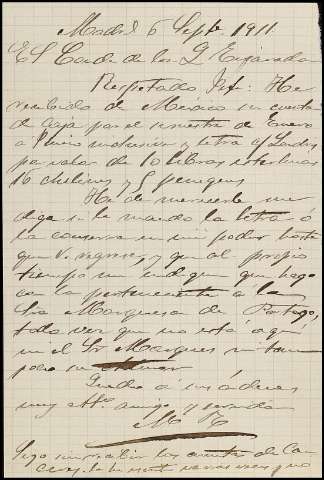 Madrid 6 Septe 1911
El Conde de los
Respetado Jefe: He
recibido de Mexico su cuenta
de Caja por el semestre de Enero
a Junio inclusive y letra s/ Londres
por valor de 10 libras esterlinas
16 chelines y 5 peniques
Ha de merecerle me
diga si le mando la letra ó
la conservo en mi poder hasta
que V. regrese, y que al propio
tiempo me indique que hago
con la perteneciente a la
Sra Marquesa de Portago,
toda vez que no está aquí
ni el Sr Marques ni tam
poco su
Queda á sus órdenes
muy atto amigo y servidor
M R
Sigo sin recibir las cuentas de Ca